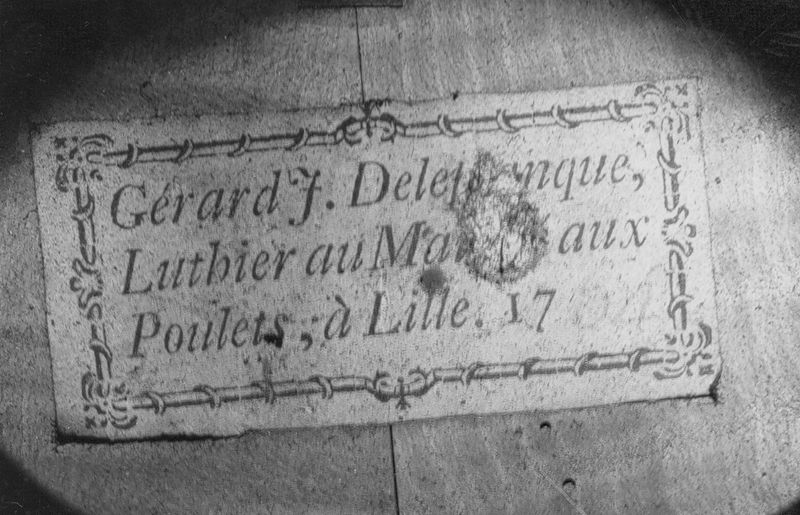 Gérard J. Deleplanque,
Luthier au Marché aux
Poulets, à Lille. 17